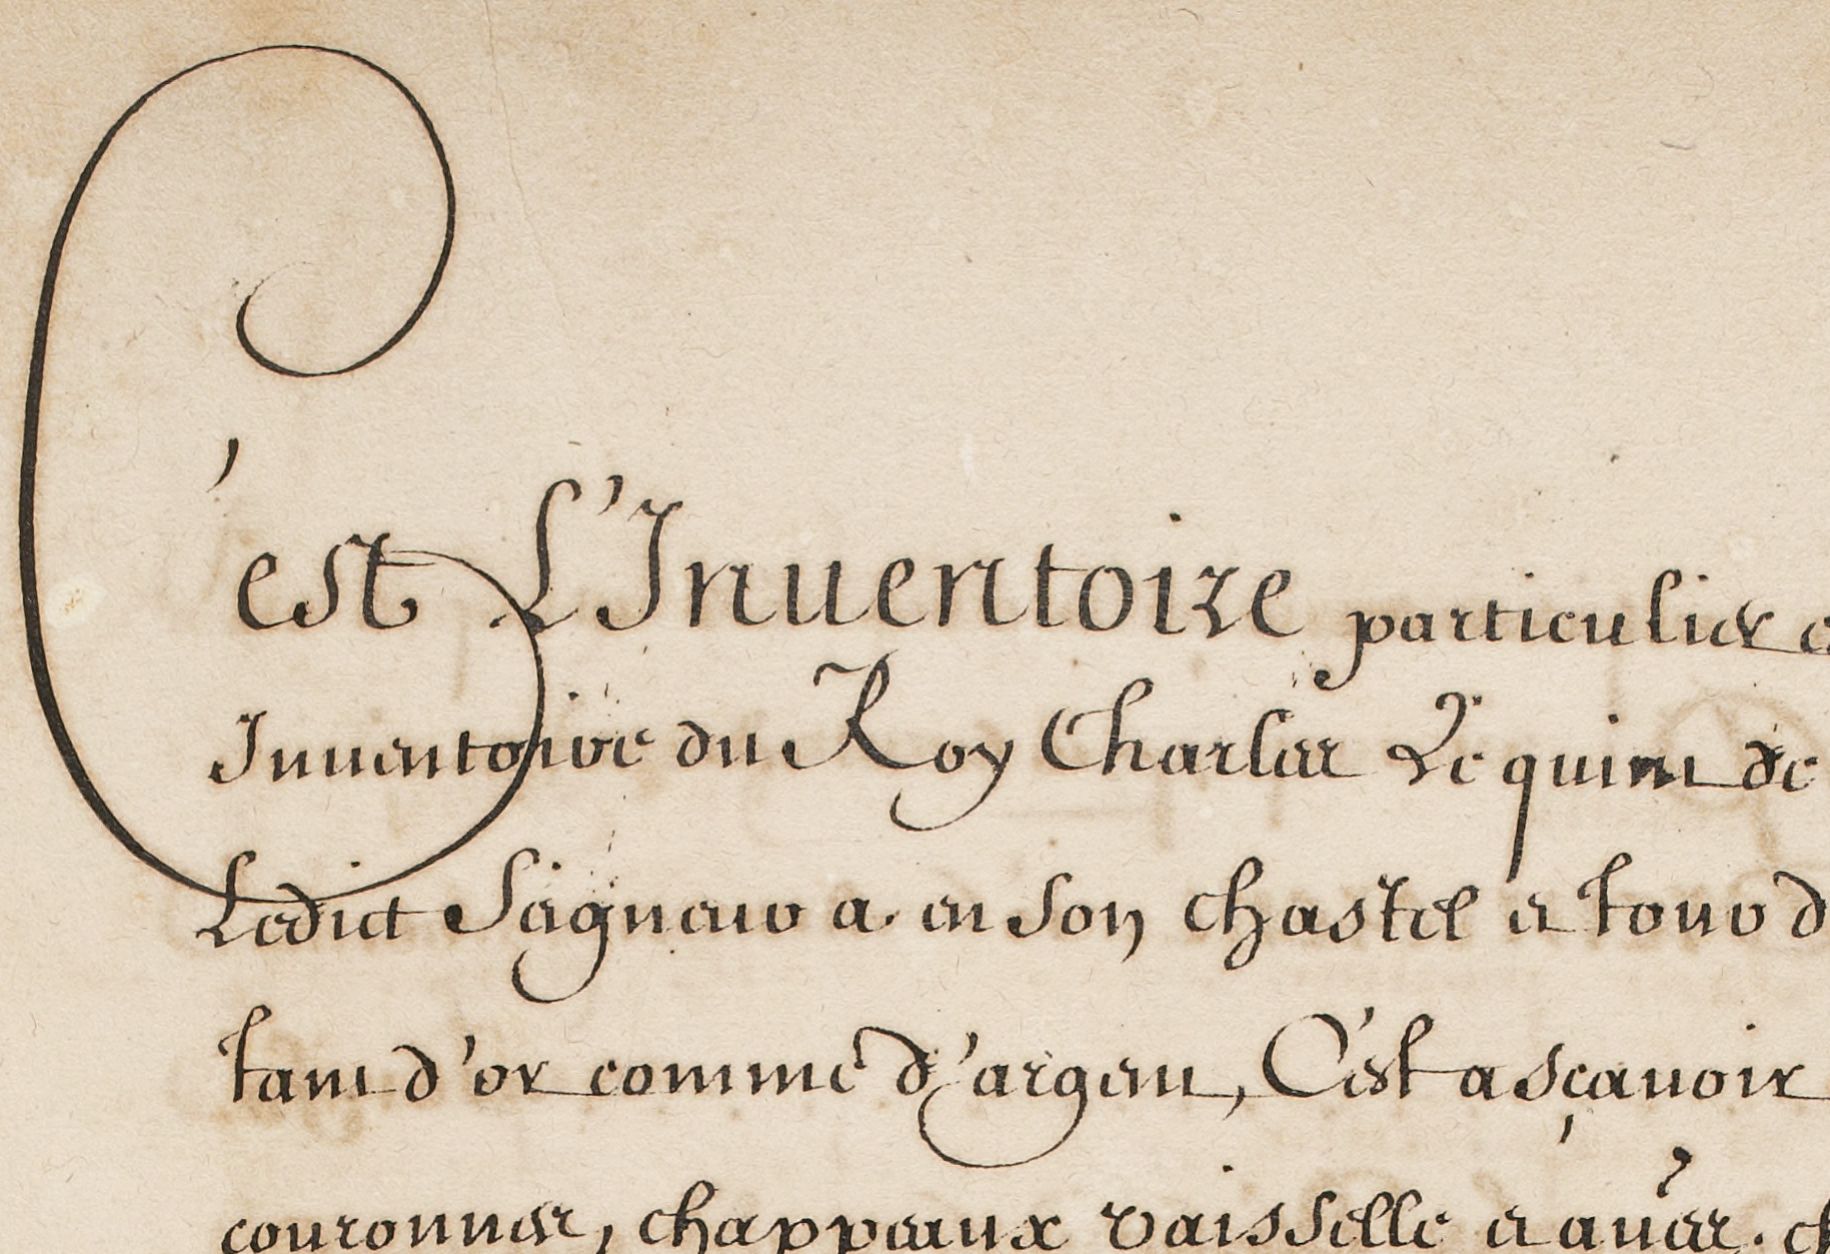 C'est L'Inuentoire particulier
Inuentoire du Roy Charles Le quint de
Ledict Seigneur a en son chastel et tour
tant d'or comme d'argent, C'est asçauoir
couronnes, chappeaux vaisselle et